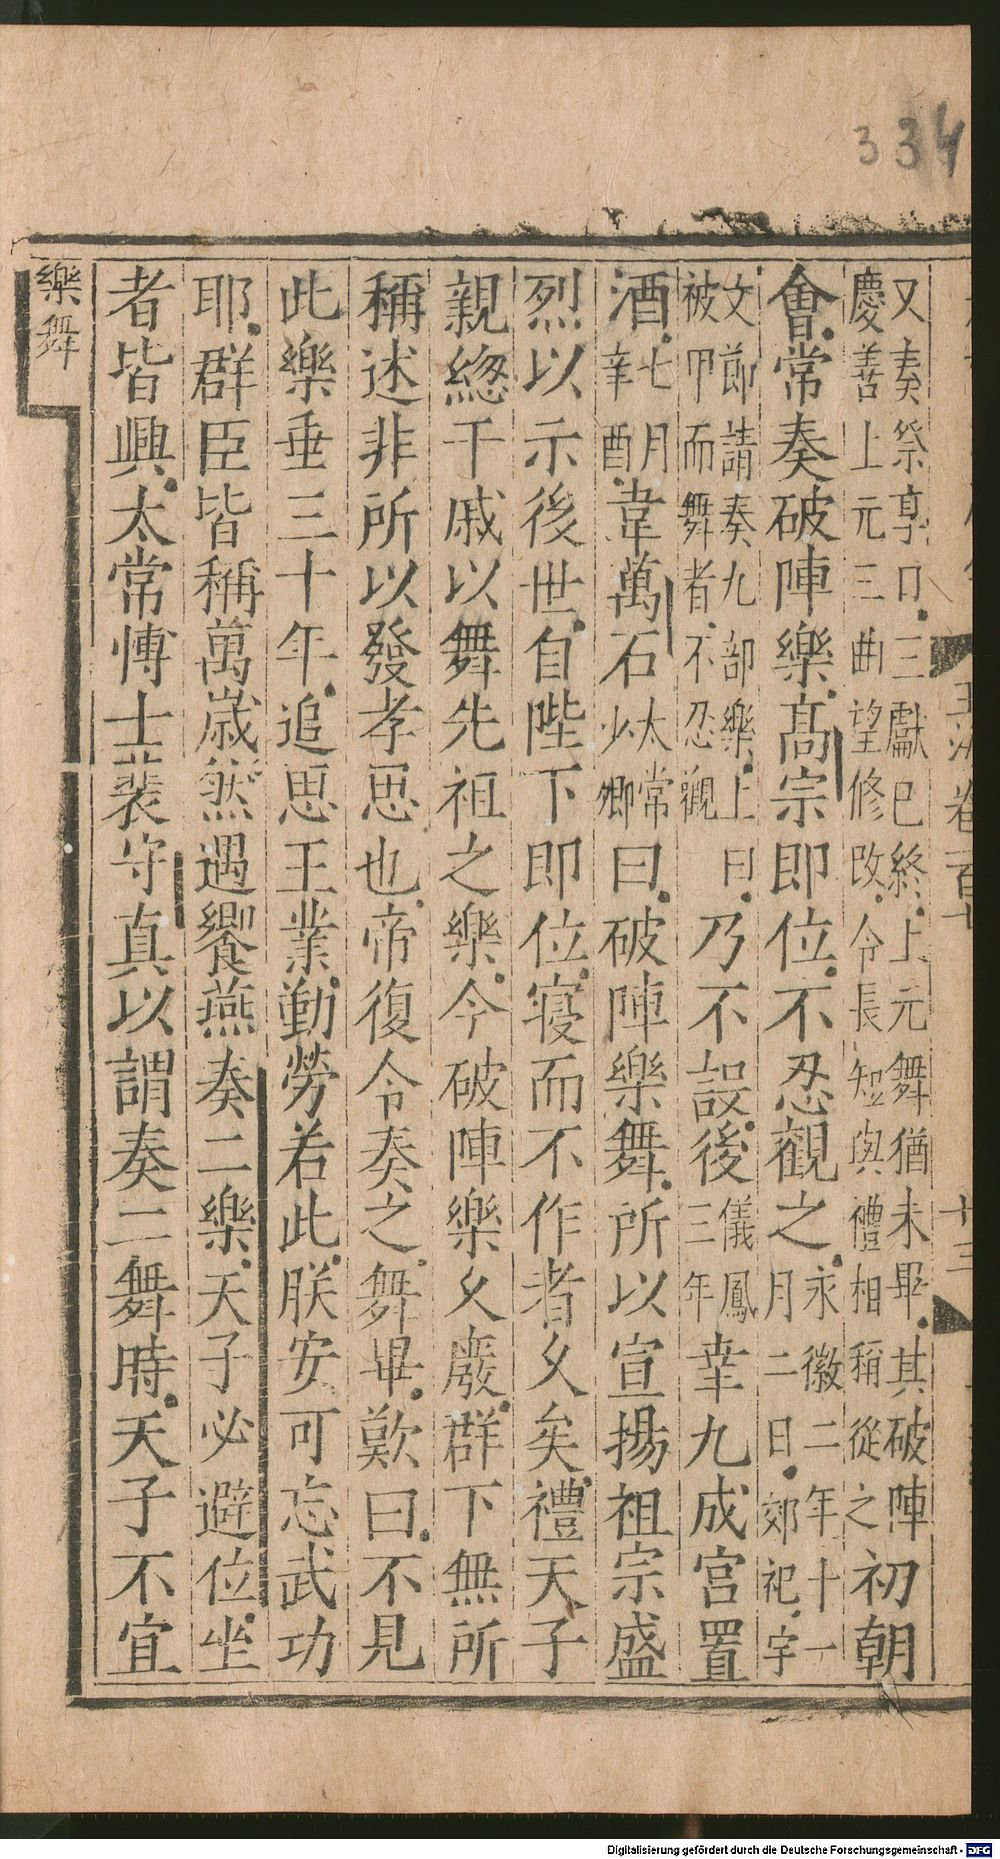 334
又奏祭享日三獻已終上元舞猶未畢其破陣
慶善上元三曲望修改令長短與禮相稱從之
初朝
會常奏破陣樂高宗即位不忍觀之永徽二年十一
月二日郊祀宇
文節請奏九部樂上曰
被甲而舞者不忍觀
乃不設後儀鳳三年幸九成宮置
酒七月辛酉韋萬石太常少卿曰破陣樂舞所以宣揚祖宗盛
烈以示後世自陛下即位寑而不作者久矣禮天子
親緫干戚以舞先祖之樂今破陣樂久廢群下無所
稱述非所以發孝思也帝復令奏之舞畢歎曰不見
此樂垂三十年追思王業勤勞若此朕安可忘武功
耶群臣皆稱萬歲然遇饗燕奏二樂天子必避位坐
者皆興太常博士裴守真以謂奏二舞時天子不宜
樂舞
Digitalisierung gefördert durch die Deutsche Forschungsgemeinschaft - DFG